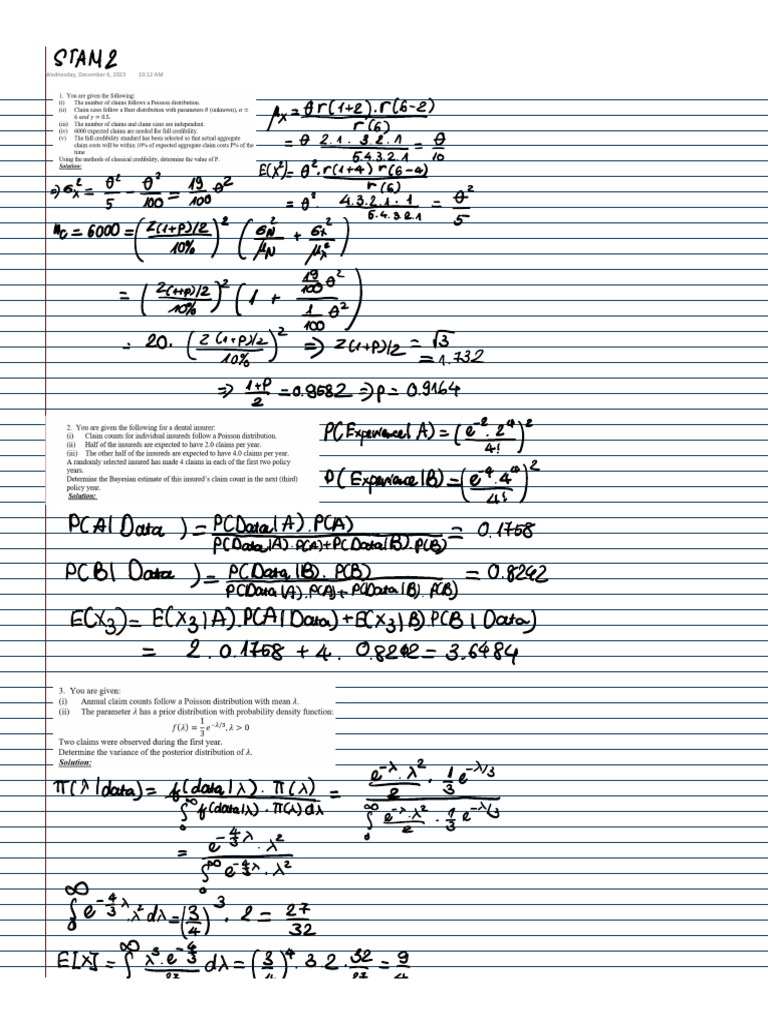 STAM2
Wednesday, December 6, 2023 10:12 AM
1. You are given the following:
(i) The number of claims follows a Poisson distribution.
(ii) Claim sizes follow a Burr distribution with parameters θ (unknown), α = 6 and γ = 0.5.
(iii) The number of claims and claim sizes are independent.
(iv) 6000 expected claims are needed for full credibility.
(v) The full credibility standard has been selected so that actual aggregate
claim costs will be within 10% of expected aggregate claim costs P% of the
time.
Using the methods of classical credibility, determine the value of P.
Solution:
μx = θ Γ(1+2).Γ(6-2) / Γ(6)
= θ 2.1.3.2.1 / 5.4.3.2.1 = θ/10
E(X²) = θ².Γ(1+4) Γ(6-4) / Γ(6)
= θ². 4.3.2.1.1 / 5.4.3.2.1 = θ²/5
=> σx² = θ²/5 - θ²/100 = 19/100 θ²
nc = 6000 = (Z(1+P)/2 / 10%)² (σN²/μN + σx²/μx²)
= (Z(1+P)/2 / 10%)² (1 + 19/100 θ² / 1/100 θ²)
= 20. (Z(1+P)/2 / 10%)² => Z(1+P)/2 = √3
= 1.732
=> 1+P/2 = 0.9582 => P = 0.9164
2. You are given the following for a dental insurer:
(i) Claim counts for individual insureds follow a Poisson distribution.
(ii) Half of the insureds are expected to have 2.0 claims per year.
(iii) The other half of the insureds are expected to have 4.0 claims per year.
A randomly selected insured has made 4 claims in each of the first two policy
years.
Determine the Bayesian estimate of this insured's claim count in the next (third)
policy year.
Solution:
P(Experience|A) = (e⁻².2⁴ / 4!)²
P(Experience|B) = (e⁻⁴.4⁴ / 4!)²
P(A|Data) = P(Data|A).P(A) / P(Data|A).P(A)+P(Data|B).P(B) = 0.1758
P(B|Data) = P(Data|B).P(B) / P(Data|A).P(A)+P(Data|B).P(B) = 0.8242
E(X₃) = E(X₃|A).P(A|Data)+E(X₃|B).P(B|Data)
= 2.0.1758 + 4.0.8242 = 3.6484
3. You are given:
(i) Annual claim counts follow a Poisson distribution with mean λ.
(ii) The parameter λ has a prior distribution with probability density function:
f(λ) = 1/3 e^(-λ/3), λ > 0
Two claims were observed during the first year.
Determine the variance of the posterior distribution of λ.
Solution:
π(λ|data) = f(data|λ).π(λ) / ∫₀^∞ f(data|λ).π(λ)dλ = e^(-λ).λ²/2 . 1/3 e^(-λ/3) / ∫₀^∞ e^(-λ).λ²/2 . 1/3 e^(-λ/3)
= e^(-4/3 λ).λ² / ∫₀^∞ e^(-4/3 λ).λ²
∫₀^∞ e^(-4/3 λ).λ² dλ = (3/4)³.2 = 27/32
E[X] = ∫₀^∞ λ³.e^(-4/3) dλ = (3/4)⁴.3.2.32/27 = 9/4